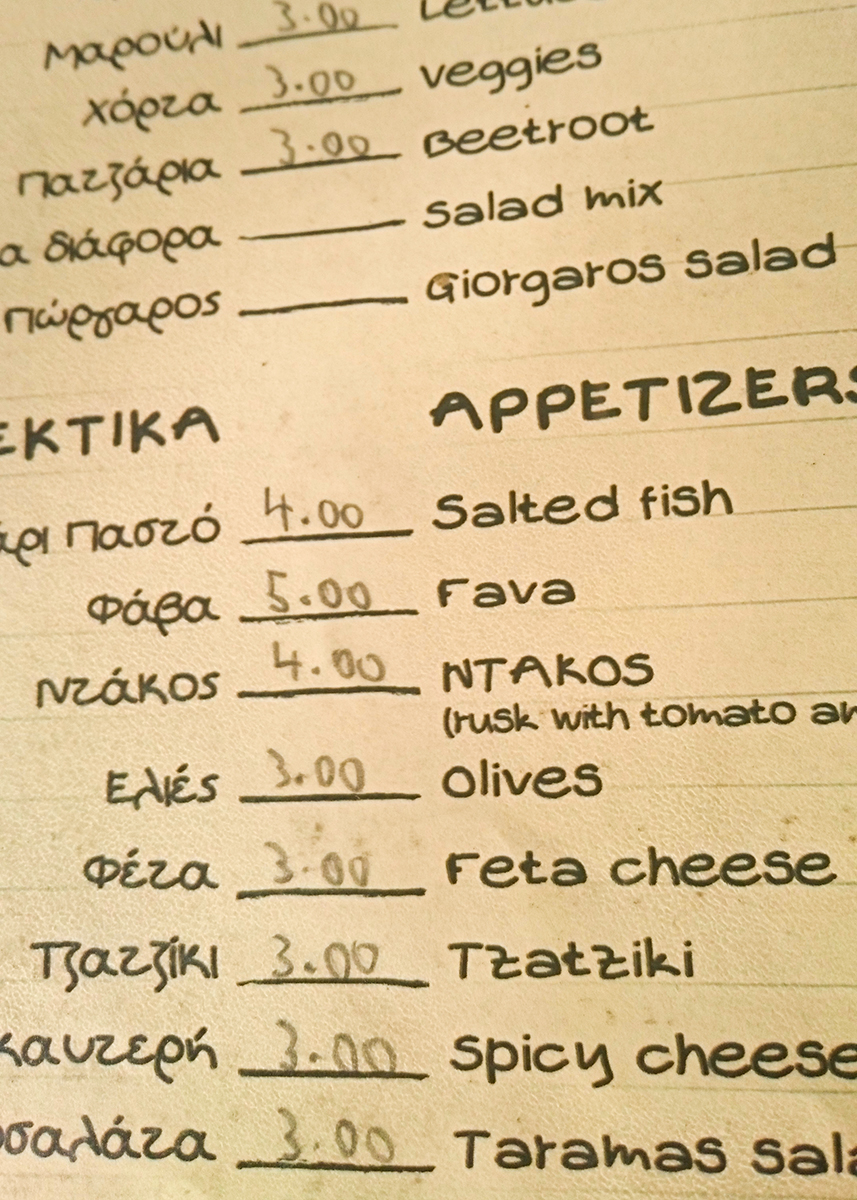 Μαρούλι 3.00
Χόρτα 3.00 veggies
Πατζάρια 3.00 Beetroot
διάφορα Salad mix
Γιώργαρος Giorgaros salad
APPETIZERS
Παστό 4.00 Salted fish
Φάβα 5.00 Fava
Ντάκος 4.00 NTAKOS
(rusk with tomato
Ελιές 3.00 Olives
Φέτα 3.00 Feta cheese
Τζατζίκι 3.00 Tzatziki
καυτερή 3.00 Spicy cheese
3.00 Taramas